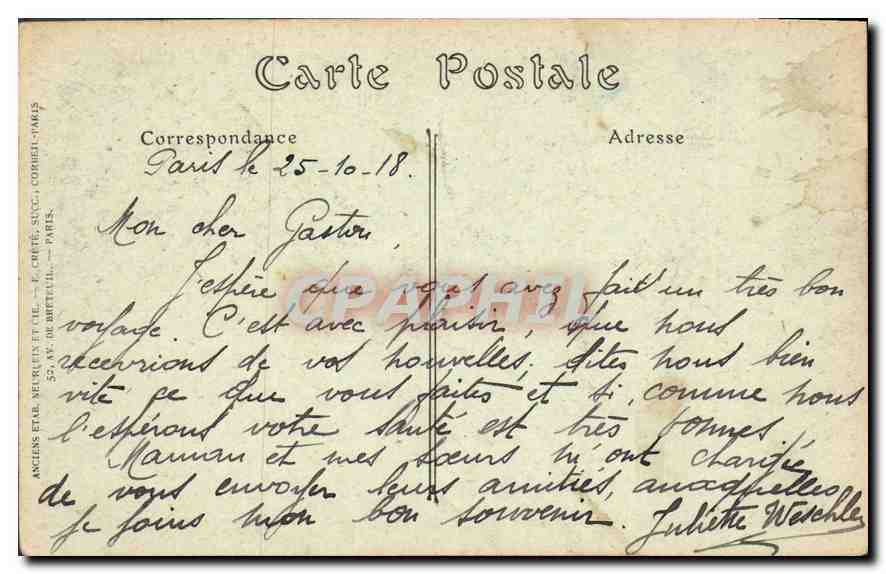 Carte Postale
Correspondance
Adresse
Paris le 25-10-18.
Mon cher Gaston,
J'espère que vous avez fait un très bon
voyage. C'est avec plaisir, que nous
recevrions de vos nouvelles, dites nous bien
vite ce que vous faites et si, comme nous
l'espérons votre santé est très bonnes.
Maman et mes sœurs m'ont chargée
de vous envoyer leurs amitiés, auxquelles
je joins mon bon souvenir. Juliette Weschler
ANCIENS ETAB. NEURDEIN ET CIE. — E. CRÉTÉ, SUCC., CORBEIL-PARIS
52, AV. DE BRETEUIL. — PARIS.
CPAPHIL